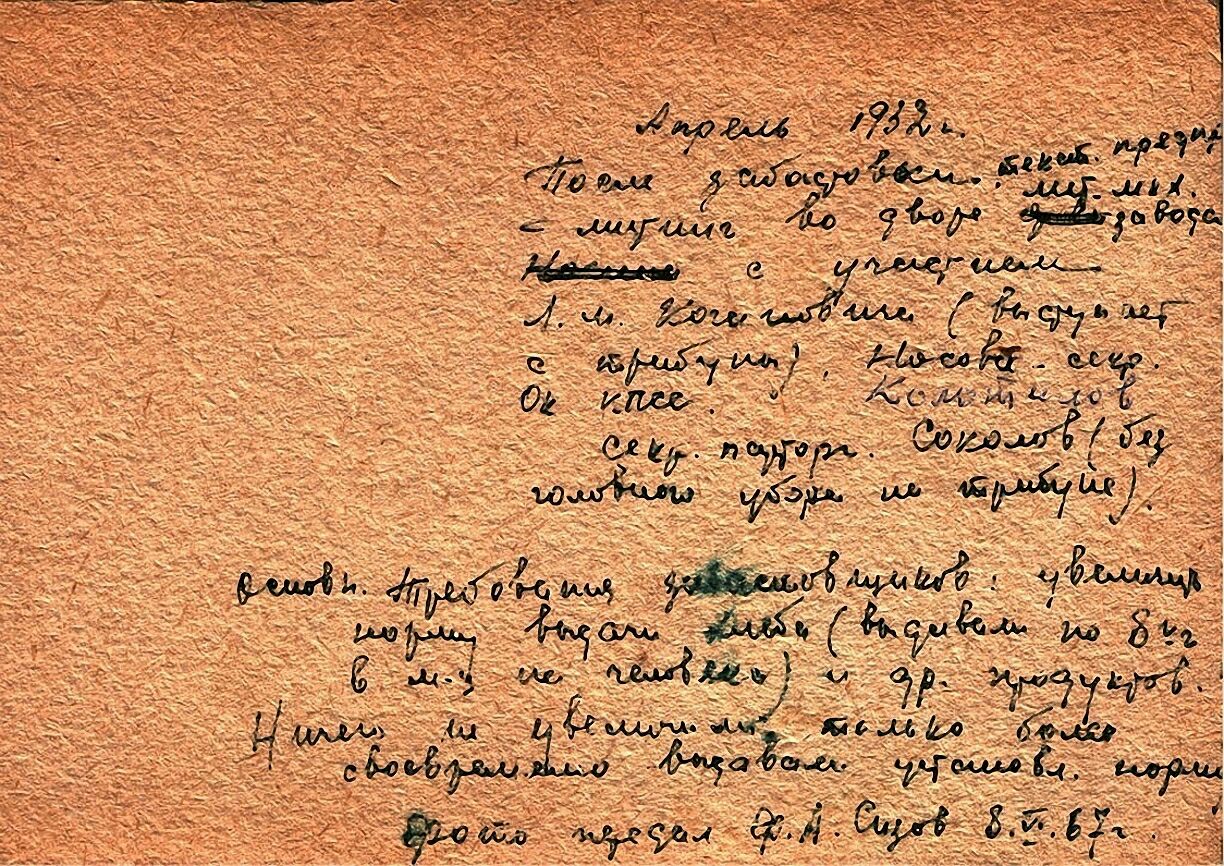 Апрель 1932 г.
После забастовки текст. предпр
лит. мех.
– митинг во дворе завода
с участием
Л. М. Кагановича (выступает
с трибуны), Носова – секр.
Ок КПСС. Колотилов
секр. парторг. Соколов (без
головного убора на трибуне).
основн. требования забастовщиков: увеличить
норму выдачи хлеба (выдавали по 8 кг
в м-ц на человека) и др. продуктов.
Ничего не увеличили, только более
своевременно выдавали установл. норму
Фото передал Ф. А. Сизов 8.VI.67 г.